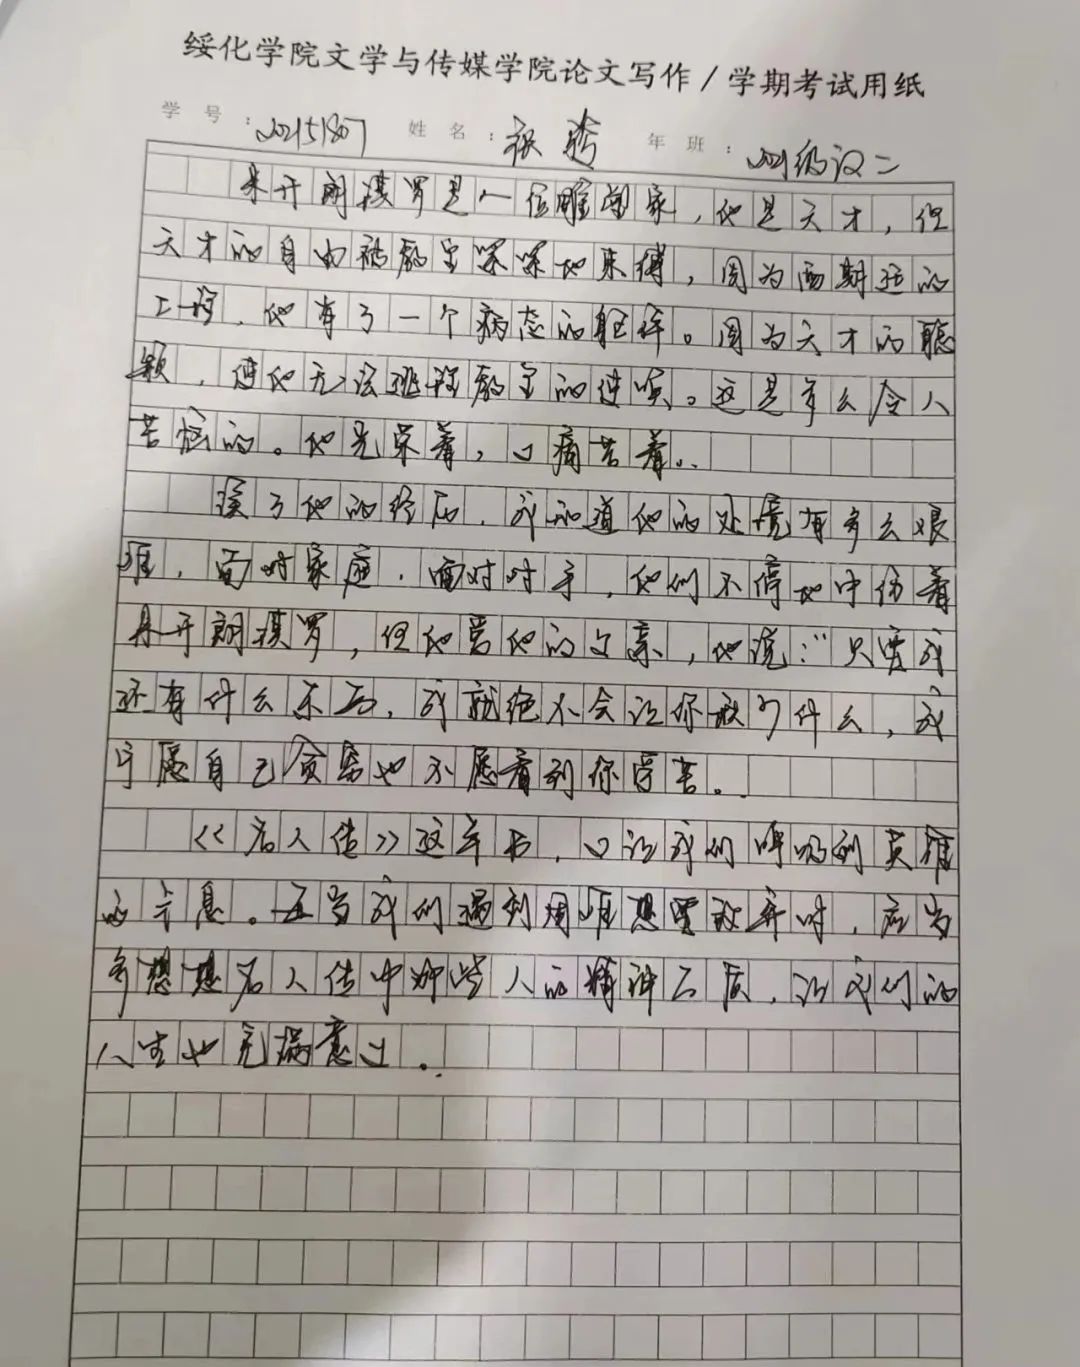 绥化学院文学与传媒学院论文写作/学期考试用纸
学号:202151807 姓名:张 年班:2021级汉二
米开朗琪罗是一位雕塑家,他是天才,但
天才的自由被教皇深深地束缚,因为长期的
工作,他有了一个病态的躯体。因为天才的聪
颖,使他无法逃避教皇的使唤。这是多么令人
苦恼的。他光荣着,也痛苦着。
读了他的经历,我知道他的处境有多么艰
难,面对家庭,面对对手,他们不停地中伤着
米开朗琪罗,但他爱他的父亲,他说:“只要我
还有什么东西,我就绝不会让你缺了什么,我
宁愿自己贫穷也不愿看到你受苦。
《名人传》这本书,也让我们呼吸到英雄
的气息。在当我们遇到困难想要放弃时,应当
多想想名人传中那些人的精神品质,让我们的
人生也充满意义。